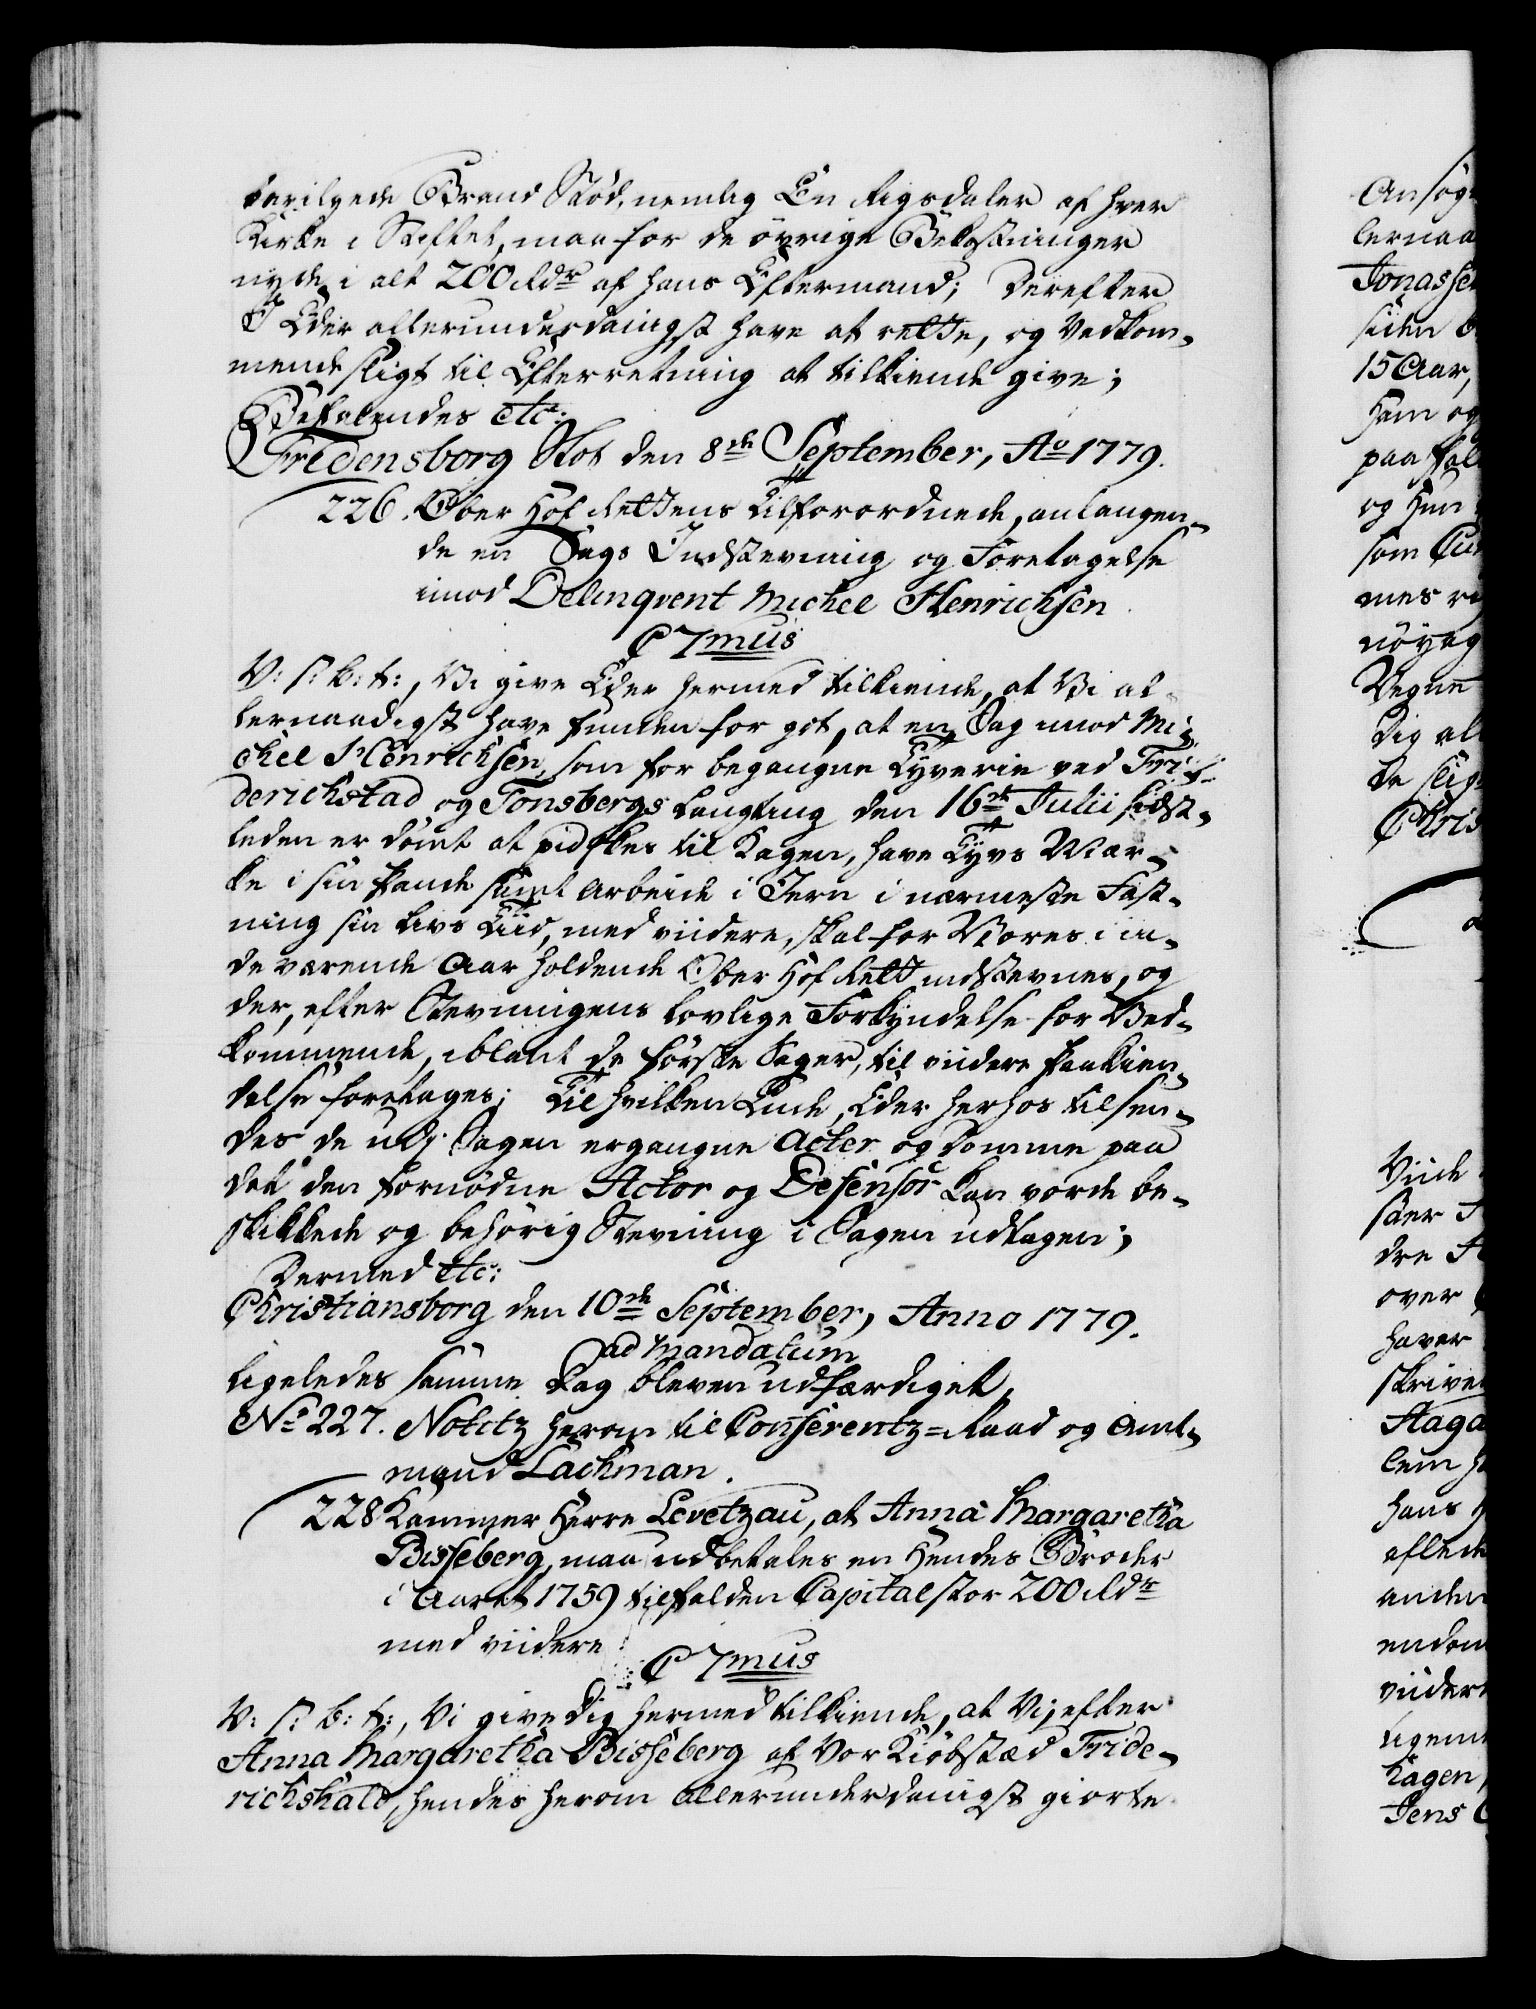 bevilgede Brand Stød, nemlig En Rigsdaler af hver
Kirke i Stiftet, maa for de øvrige Bekostninger
nyde i alt 200 Rdr af hans Eftermand; Derefter
I Eder allerunderdanigst have at rette, og Vedkom-
mende sligt til Efterretning at tilkiende give;
Befalendes etc:
Fredensborg Slot den 8de September, Ao 1779.
226. Ober Hof Rettens Tilforordnede, anlangen-
de en Sags Indstevning og Foretagelse
imod Delinqvent Michel Henrichsen
C 7mus
V: S: B: T:, Vi give Eder hermed tilkiende, at Vi al-
lernaadigst have funden for got, at en Sag imod Mi-
chel Henrichsen, som for begangne Tyverie ved Fri-
derichstad og Tonsbergs Laugting den 16de Julii sidst-
leden er dømt at pidskes til Kagen, have Tyvs Mær-
ke i sin Pande samt Arbeide i Jern i nærmeste Fest-
ning sin Livs Tiid, med viidere, skal for Vores i in-
deværende Aar holdende Ober Hof Rett indstevnes, og
der, efter Stevningens lovlige Forkyndelse for Ved-
kommende, iblant de første Sager, til viidere Paakien-
delse foretages; Til hvilken Ende, Eder herhos tilsen-
des de udj Sagen ergangne Acter og Domme paa
det den fornødne Actor og Defensor kan vorde be-
skikkede og behørig Stevning i Sagen udtagen;
Dermed etc:
Christiansborg den 10de September, Anno 1779.
ad Mandatum
Ligeledes samme Dag bleven udfærdiget,
No 227. Notitz herom til Conferentz-Raad og Amt-
mand Lachman.
228 Kammer Herre Levetzau, at Anna Margaretha
Bisseberg, maa udbetales en Hendes Broder
i Aaret 1759 tilfalden Capital stor 200 Rdr
med viidere
C 7mus
V: S: B: T:, Vi give dig hermed tilkiende, at Vi, efter
Anna Margaretha Bisseberg af Vor Kiøbstæd Fride-
richshald, hendes herom allerunderdanigst giorte
Ansøg
lernaa
Jonassen
siden
15 Aar,
Ham og
paa fal
og Hun
som
mes
nøyag
Vegne
Dig al
Chris
Viide
sker
dre
over
haver
skrive
Haga
lem
hans
aflede
anden
endom
viidere
ligem
hagen,
Jens